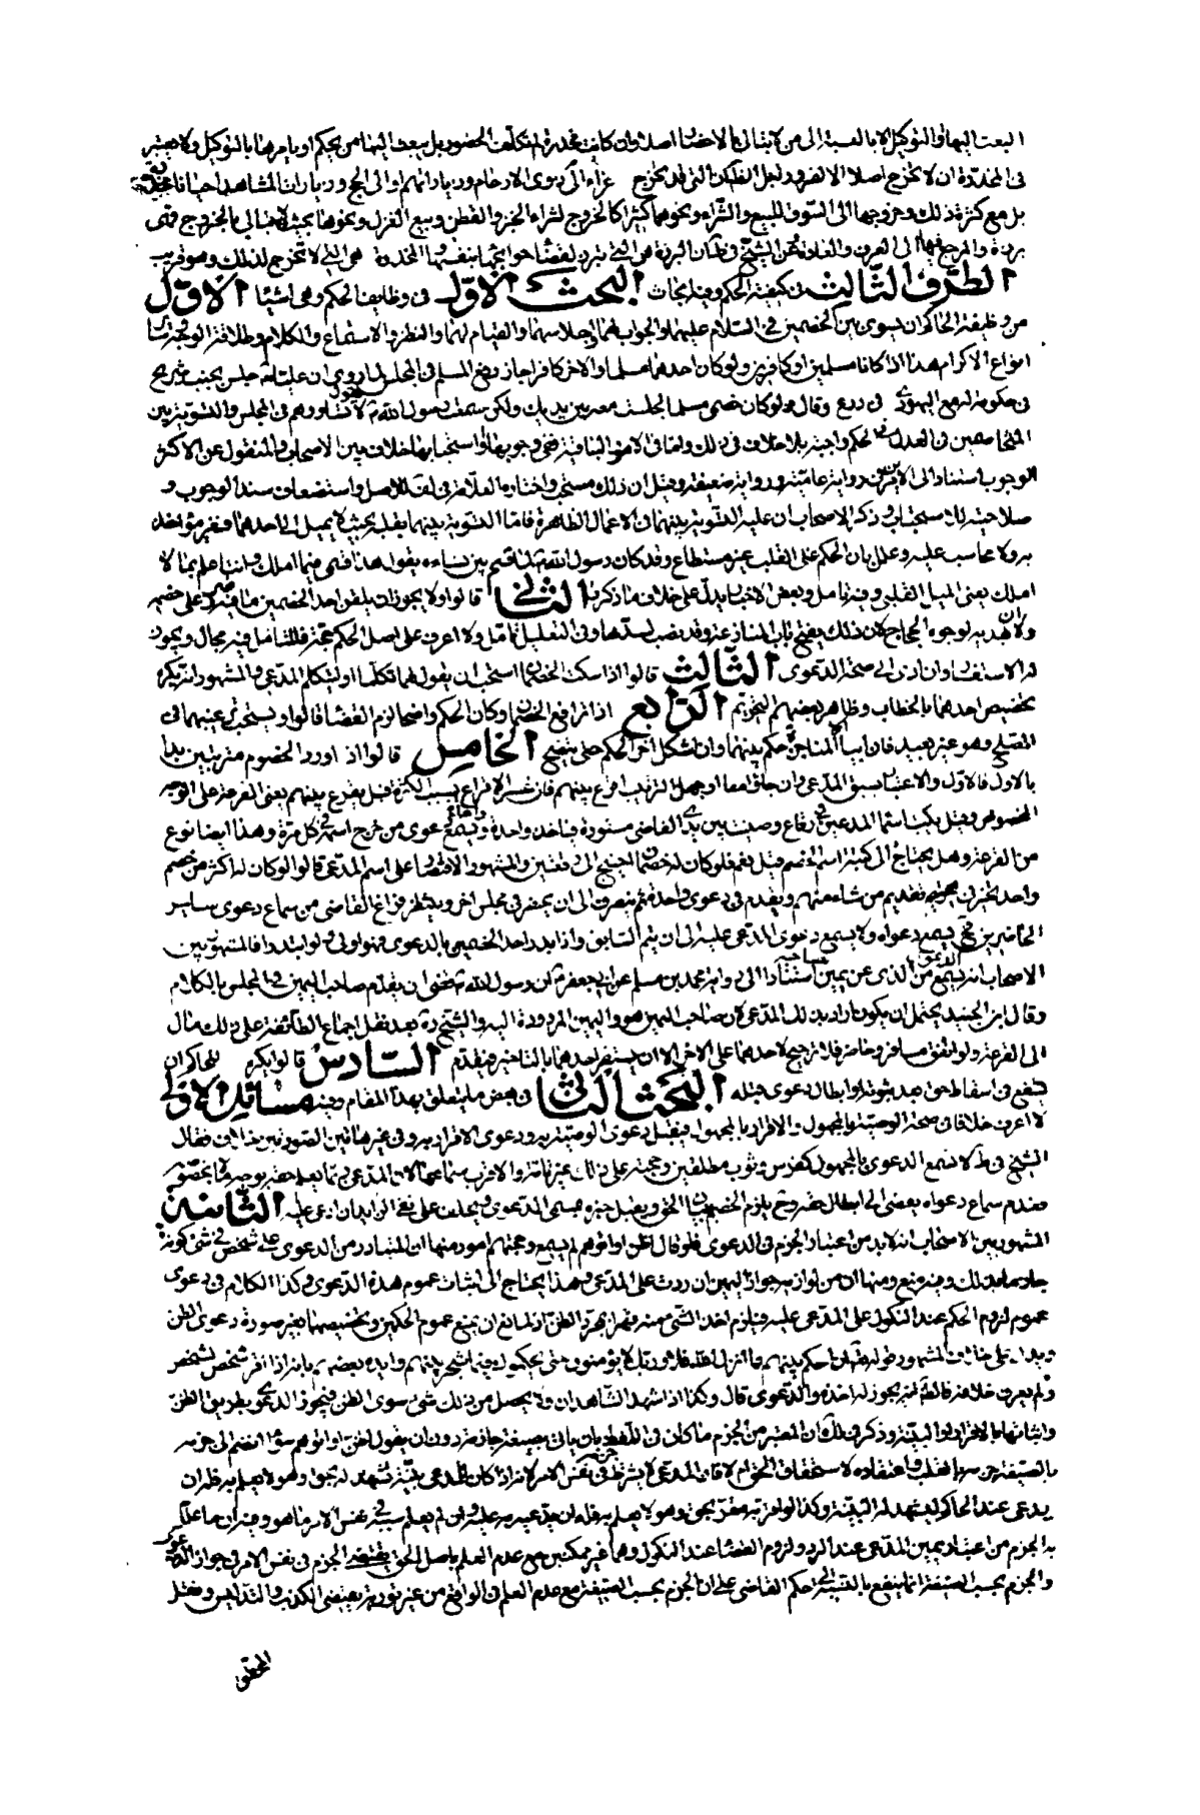 البعث اليها او التوكيل الا بالنسبة الى من لا يبالي بالاحضار اصلا وان كانت مخدرة لم تكلف الحضور بل يبعث اليها من يحكم او يامرها بالتوكيل ولا يعتبر
في المخدرة ان لا تخرج اصلا الا لضرورة بل قد تخرج الى عزاء ذوي الارحام وزياراتهم او الى الحج وزيارات المشاهد احيانا
بل مع كثرة ذلك وخروجها الى السوق للبيع والشراء ونحوهما كثيرا كالخروج لشراء الخبز والقطن وبيع الغزل ونحوها بحيث لا تبالي بالخروج فهي
برزة والمرجع فيها الى العرف والعادة وعن الشيخ في ط ان البرزة هي التي تبرز لقضاء حوائجها بنفسها والمخدرة هي التي لا تخرج لذلك وهو قريب
الطرف الثالث في كيفية الحكم وفيه ابحاث البحث الاول في وظايف الحكم وهي اشياء الاول
من وظيفة الحاكم ان يسوي بين الخصمين في السلام عليهما والجواب لهما واجلاسهما والقيام لهما والنظر والاستماع والكلام وطلاقة الوجه وسائر
انواع الاكرام هذا اذا كانا مسلمين او كافرين ولو كان احدهما مسلما والاخر كافرا جاز رفع المسلم في المجلس لما روي ان عليا جلس بجنب شريح
في حكومة له مع اليهودي في درع وقال لو كان خصمي مسلما لجلست معه بين يديك ولكن سمعت رسول الله يقول لا تساووهم في المجلس والتسوية بين
المتخاصمين في العدل في الحكم واجبة بلا خلاف في ذلك واما في الامور الباقية ففي وجوبها او استحبابها خلاف بين الاصحاب والمنقول عن الاكثر
الوجوب استنادا الى رواية عامية ورواية ضعيفة وقيل ان ذلك مستحب واختاره العلامة في لف للاصل واستضعاف سند الوجوب و
صلاحيته للاستحباب وذكر الاصحاب ان عليه التسوية بينهما في الاعمال الظاهرة فاما التسوية بينهما بقلبه بحيث لا يميل الى احدهما فغير مؤاخذ
به ولا محاسب عليه وعلل بان الحكم على القلب غير مستطاع وقد كان رسول الله يقسم بين نساءه يقول هذا قسمي فيما املك وانت اعلم بما لا
املك يعني الميل القلبي وفيه تامل وبعض الاخبار يدل على خلاف ما ذكرنا الثاني قالوا ولا يجوز ان يلقن احد الخصمين ما فيه ضرر على خصمه
ولا ان يهديه لوجوه الحجاج لان ذلك يفتح باب المنازعة وقد نصب لسدها وفي التعليل تامل ولا اعرف على اصل الحكم حجة فللتامل فيه مجال ويجوز
له الاستفسار وان ادى الى صحة الدعوى الثالث قالوا اذا سكت الخصمان استحب ان يقول لهما تكلما او ليتكلم المدعي والمشهور انه يكره
تخصيص احدهما بالخطاب وظاهر بعضهم التحريم الرابع اذا ترافع الخصمان وكان الحكم واضحا لزم القضاء قالوا ويستحب ترغيبهما في
الصلح وهو غير بعيد فان ابيا الا المناجزة حكم بينهما وان اشكل اخر الحكم حتى يتضح الخامس قالوا اذا ورد الخصوم مترتبين بدا
بالاول فالاول والاعتبار بسبق المدعي وان جاؤا معا او جهل الترتيب اقرع بينهم فان عسر الاقراع بسبب الكثرة قيل يقرع بينهم بعض القرعة على الوجه
المخصوص وقيل يكتب اسماء المدعين في رقاع وصيرت بين يدي القاضي مستورة فياخذ واحدة واحدة ويسمع دعوى من خرج اسمه في كل مرة وهذا ايضا نوع
من القرعة وهل يحتاج الى كتبة اسم الخصم قيل نعم فلو كان له خصمان احتيج الى رقعتين والمشهور الاقتصار على اسم المدعي قالوا لو كان له اكثر من خصم
واحد تخير في تقديم من شاء منهم ويقدم في دعوى واحدة ثم ينصرف الى ان يحضر في مجلس اخر وينتظر فراغ القاضي من سماع دعوى ساير
الحاضرين ثم يسمع دعواه ولا يسمع دعوى المدعى عليه الى ان يتم السابق واذا بدر احد الخصمين بالدعوى فهو اولى ولو ابتدرا فالمشهور بين
الاصحاب انه يسمع الدعوى من الذي عن يمين صاحبه استنادا الى رواية محمد بن مسلم عن ابي جعفر ان رسول الله قضى ان يقدم صاحب اليمين في المجلس بالكلام
وقال ابن الجنيد يحتمل ان يكون اراد بذلك المدعي لان صاحب اليمين هو واليمين المردودة اليه والشيخ ره بعد نقل اجماع الطائفة على ذلك مال
الى القرعة ولو اتفق مسافر وحاضر فلا ترجيح لاحدهما على الاخر الا ان يستضر احدهما بالتاخير فيقدم السادس قالوا يكره للحاكم ان
يشفع في اسقاط حق بعد ثبوته او ابطال دعوى قبله البحث الثاني في بعض ما يتعلق بهذا المقام وفيه مسائل الاولى
لا اعرف خلافا في صحة الوصية بالمجهول والاقرار بالمجهول فيقبل دعوى الوصية به ودعوى الاقرار به وفي غير هاتين الصورتين خلاف فقال
الشيخ في ط لا تسمع الدعوى بالمجهول كفرس وثوب مطلقين وحجته على ذلك غير تامة والاقرب سماعها لان المدعي ربما يعلم حقه بوجه ما بخصوصه
فعدم سماع دعواه يفضي الى ابطال حقه وح يلزم الخصم ببيان الحق ويقبل تفسيره بمسمى المدعوى ويحلف على نفي الزايد ان ادعي عليه الثانية
المشهور بين الاصحاب انه لا بد من اعتبار الجزم في الدعوى فلو قال اظن او اتوهم لم يسمع وحجتهم امور منها ان المتبادر من الدعوى على شخص في شئ كونه
جازما بذلك وفيه منع ومنها ان من لوازمه جواز اليمين ان ردت على المدعي وهذا يحتاج الى اثبات عموم هذه الدعوى وكذا الكلام في دعوى
عموم لزوم الحكم عند النكول على المدعى عليه فيلزم اخذ الشئ منه قهرا بمجرد الظن اذ لمانع ان يمنع عموم الحكمين وتخصيصهما بغير صورة دعوى الظن
ويدل على خلاف المشهور قوله تعالى وان احكم بينهم بما انزل الله فلا وربك لا يؤمنون حتى يحكموك فيما شجر بينهم وايده بعضهم بانه اذا اقر شخص لشخص
ولم يعرف خلافه فالظاهر انه يجوز له اخذه والدعوى قال وكذا اذا شهد الشاهدان ولا يحصل من ذلك شئ سوى الظن فيجوز الدعوى بطريق الظن
واثباتها بالاقرار او البينة وذكر في لك ان المعتبر من الجزم ما كان في اللفظ بان ياتي بصيغة جازمة دون ان يقول اظن او اتوهم سواء انضم الى جزمه
بالصيغة جزمه بالقلب واعتقاده لاستحقاق الحق ام لا فان المدعي لا يشترط جزمه في نفس الامر لانه اذا كان للمدعي بينة تشهد له بحق وهو لا يعلم به فله ان
يدعي عند الحاكم لتشهد له البينة وكذا لو اقر له مقر بحق وهو لا يعلم به فله ان يدعيه به عليه وان لم يعلم سببه في نفس الامر ما هو وفيه ان ما علل
به الجزم من اعتبار يمين المدعي عند الرد ولزوم القضاء عند النكول وهما غير ممكنين مع عدم العلم باصل الحق يقتضي الجزم في نفس الامر في جواز الدعوى
والجزم بحسب الصيغة انما ينفع بالنسبة الى حكم القاضي على ان الجزم بحسب الصيغة مع عدم العلم في الواقع من غير تورية يقتضي الكذب والتدليس ونقل
المحقق